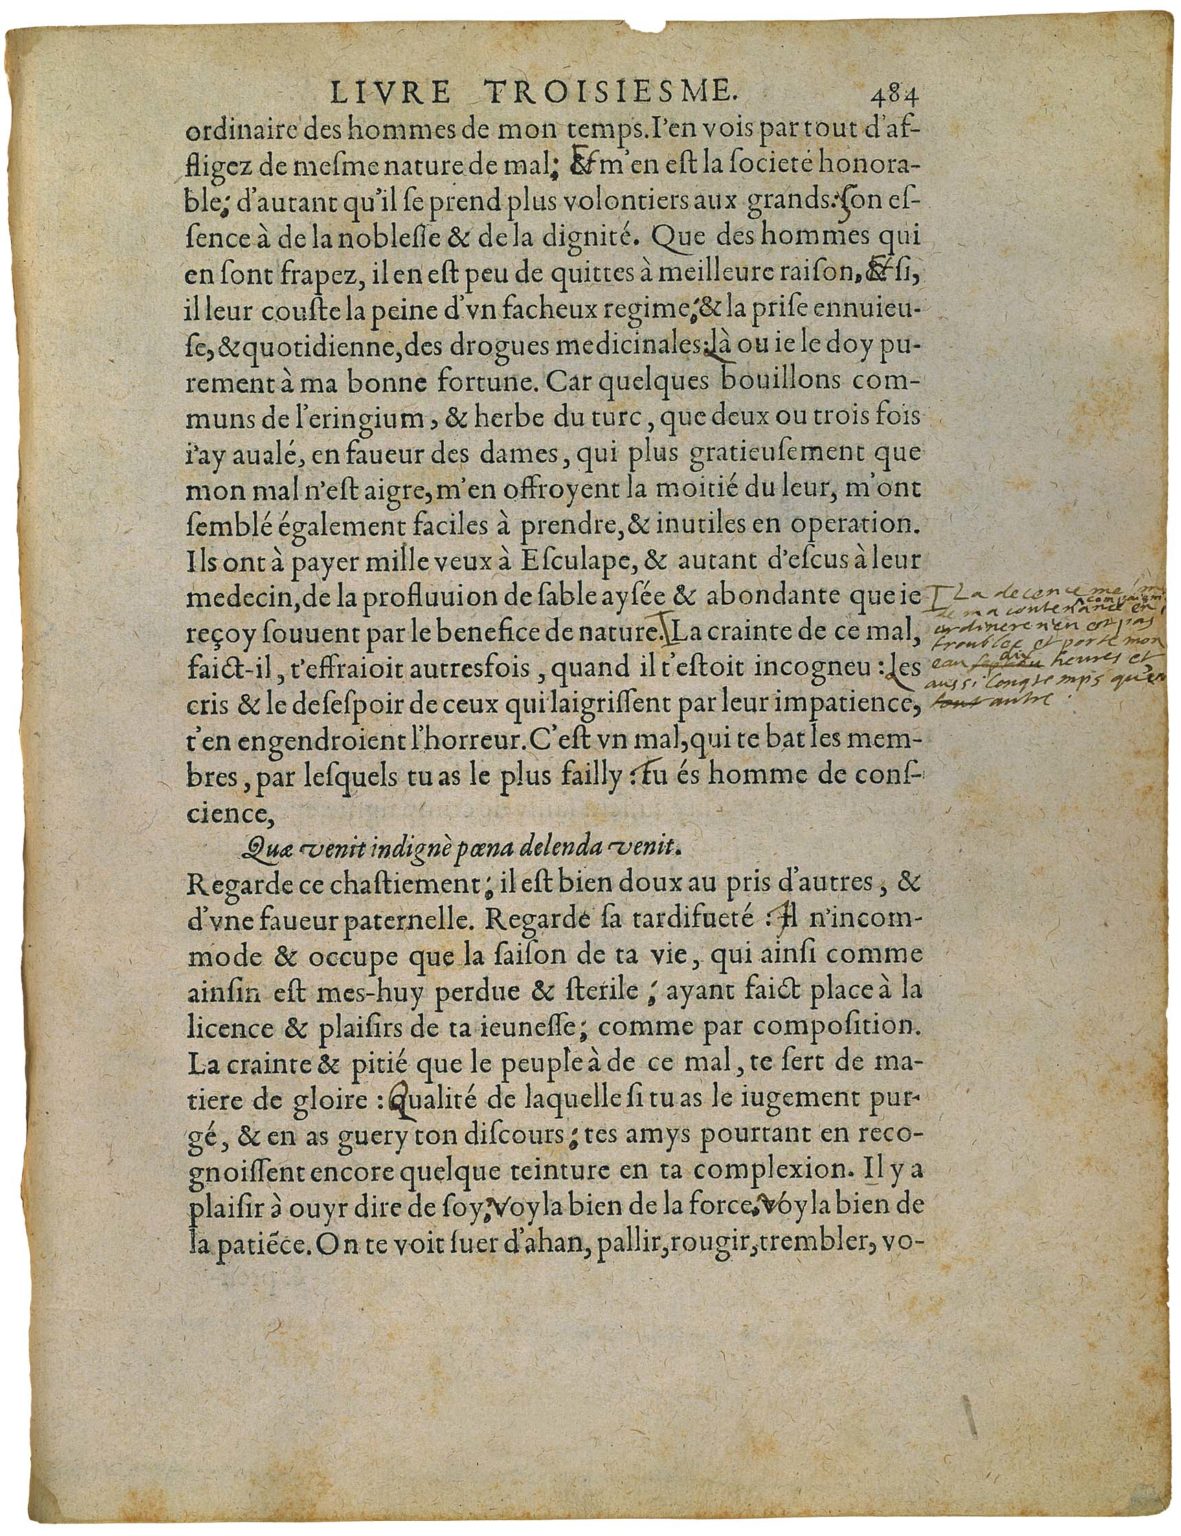 LIVRE TROISIESME. 484
ordinaire des hommes de mon temps. I'en vois par tout d'af-
fligez de meſme nature de mal; & m'en eſt la ſocieté honora-
ble; d'autant qu'il ſe prend plus volontiers aux grands: ſon eſ-
ſence à de la nobleſſe & de la dignité. Que des hommes qui
en ſont frapez, il en eſt peu de quittes à meilleure raiſon, & ſi,
il leur couſte la peine d'vn facheux regime; & la priſe ennuieu-
ſe, & quotidienne, des drogues medicinales: là ou ie le doy pu-
rement à ma bonne fortune. Car quelques bouillons com-
muns de l'eringium, & herbe du turc, que deux ou trois fois
i'ay aualé, en faueur des dames, qui plus gratieuſement que
mon mal n'eſt aigre, m'en offroyent la moitié du leur, m'ont
ſemblé également faciles à prendre, & inutiles en operation.
Ils ont à payer mille veux à Eſculape, & autant d'eſcus à leur
medecin, de la profluuion de ſable ayſée & abondante que ie
reçoy ſouuent par le benefice de nature. La crainte de ce mal,
faict-il, t'effraioit autresfois, quand il t'eſtoit incogneu: Les
cris & le deſeſpoir de ceux qui laigriſſent par leur impatience,
t'en engendroient l'horreur. C'eſt vn mal, qui te bat les mem-
bres, par leſquels tu as le plus failly: Tu és homme de conſ-
cience,
Quæ venit indignè pœna delenda venit.
Regarde ce chaſtiement; il eſt bien doux au pris d'autres, &
d'vne faueur paternelle. Regarde ſa tardifueté: Il n'incom-
mode & occupe que la ſaiſon de ta vie, qui ainſi comme
ainſin eſt mes-huy perdue & ſterile; ayant faict place à la
licence & plaiſirs de ta ieuneſſe; comme par compoſition.
La crainte & pitié que le peuple à de ce mal, te ſert de ma-
tiere de gloire: Qualité de laquelle ſi tu as le iugement pur-
gé, & en as guery ton diſcours; tes amys pourtant en reco-
gnoiſſent encore quelque teinture en ta complexion. Il y a
plaiſir à ouyr dire de ſoy; Voyla bien de la force, Voyla bien de
la patiẽce. On te voit ſuer d'ahan, pallir, rougir, trembler, vo-
La decence me
de ma contenance en compaignie
ordinere n'en est pas
troublee et porte mon
eau dix heures et
aussi longtemps qu'un
autre